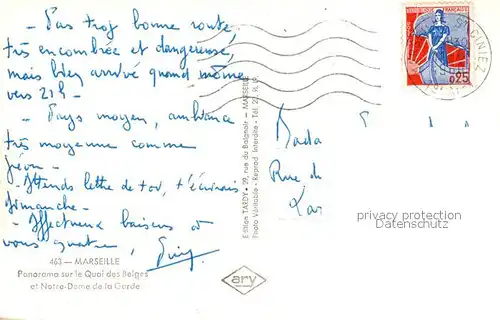 - Pas trop bonne route,
très encombrée et dangereuse,
mais bien arrivé quand même
vers 21h -
- Pays moyen, ambiance
très moyenne comme
- Attends lettre de toi, t'écrirais
dimanche -
- Affectueux baisers à
vous quatre,
Guy
463 — MARSEILLE
Panorama sur le Quai des Belges
et Notre-Dame de la Garde
Edition TARDY - 29, rue du Baignoir - MARSEILLE
Photo Véritable - Reprod. Interdite - Tél. 20.91.19
ary
REPUBLIQUE FRANÇAISE
0,25
GINIEZ
Dada
Rue de
privacy protection
Datenschutz